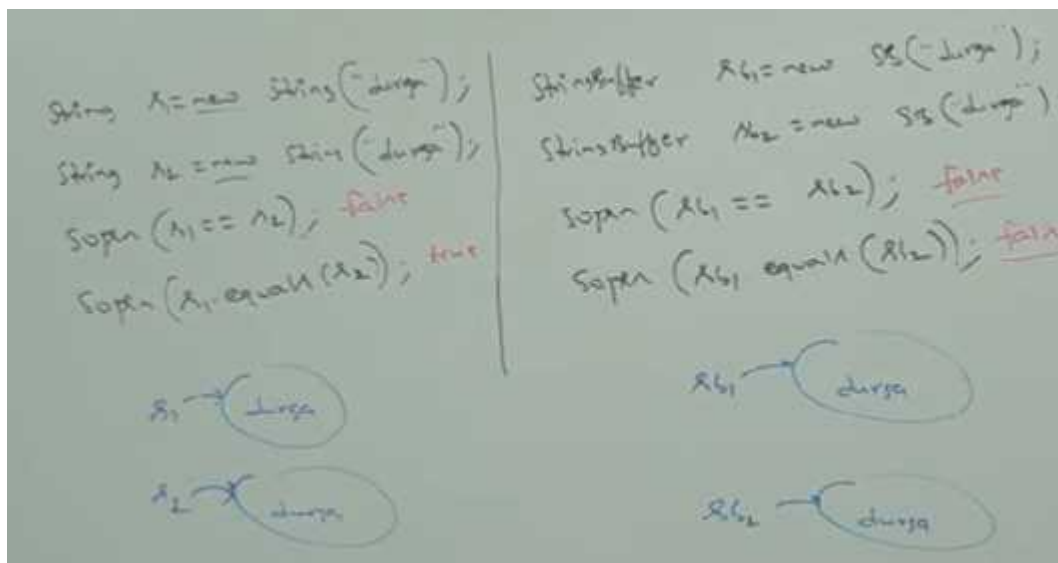 String s1 = new String("durga");
String s2 = new String("durga");
Sopln (s1 == s2); false
Sopln (s1.equals(s2)); true
s1 durga
s2 durga
StringBuffer sb1 = new SB("durga");
StringBuffer sb2 = new SB("durga")
Sopln (sb1 == sb2); false
Sopln (sb1 equals (sb2)); false
sb1 durga
sb2 durga